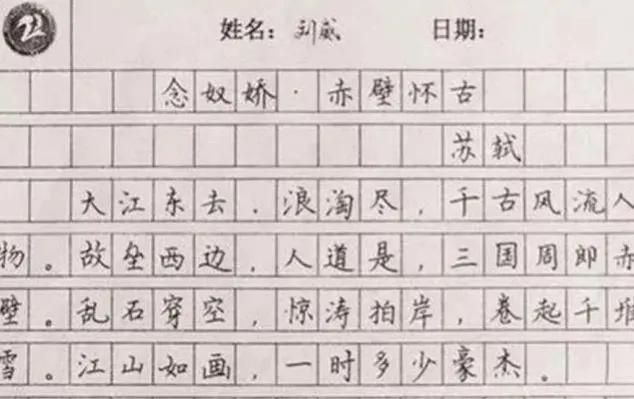 姓名：刘威 日期：
念奴娇·赤壁怀古
苏轼
大江东去，浪淘尽，千古风流人
物。故垒西边，人道是，三国周郎赤
壁。乱石穿空，惊涛拍岸，卷起千堆
雪。江山如画，一时多少豪杰。